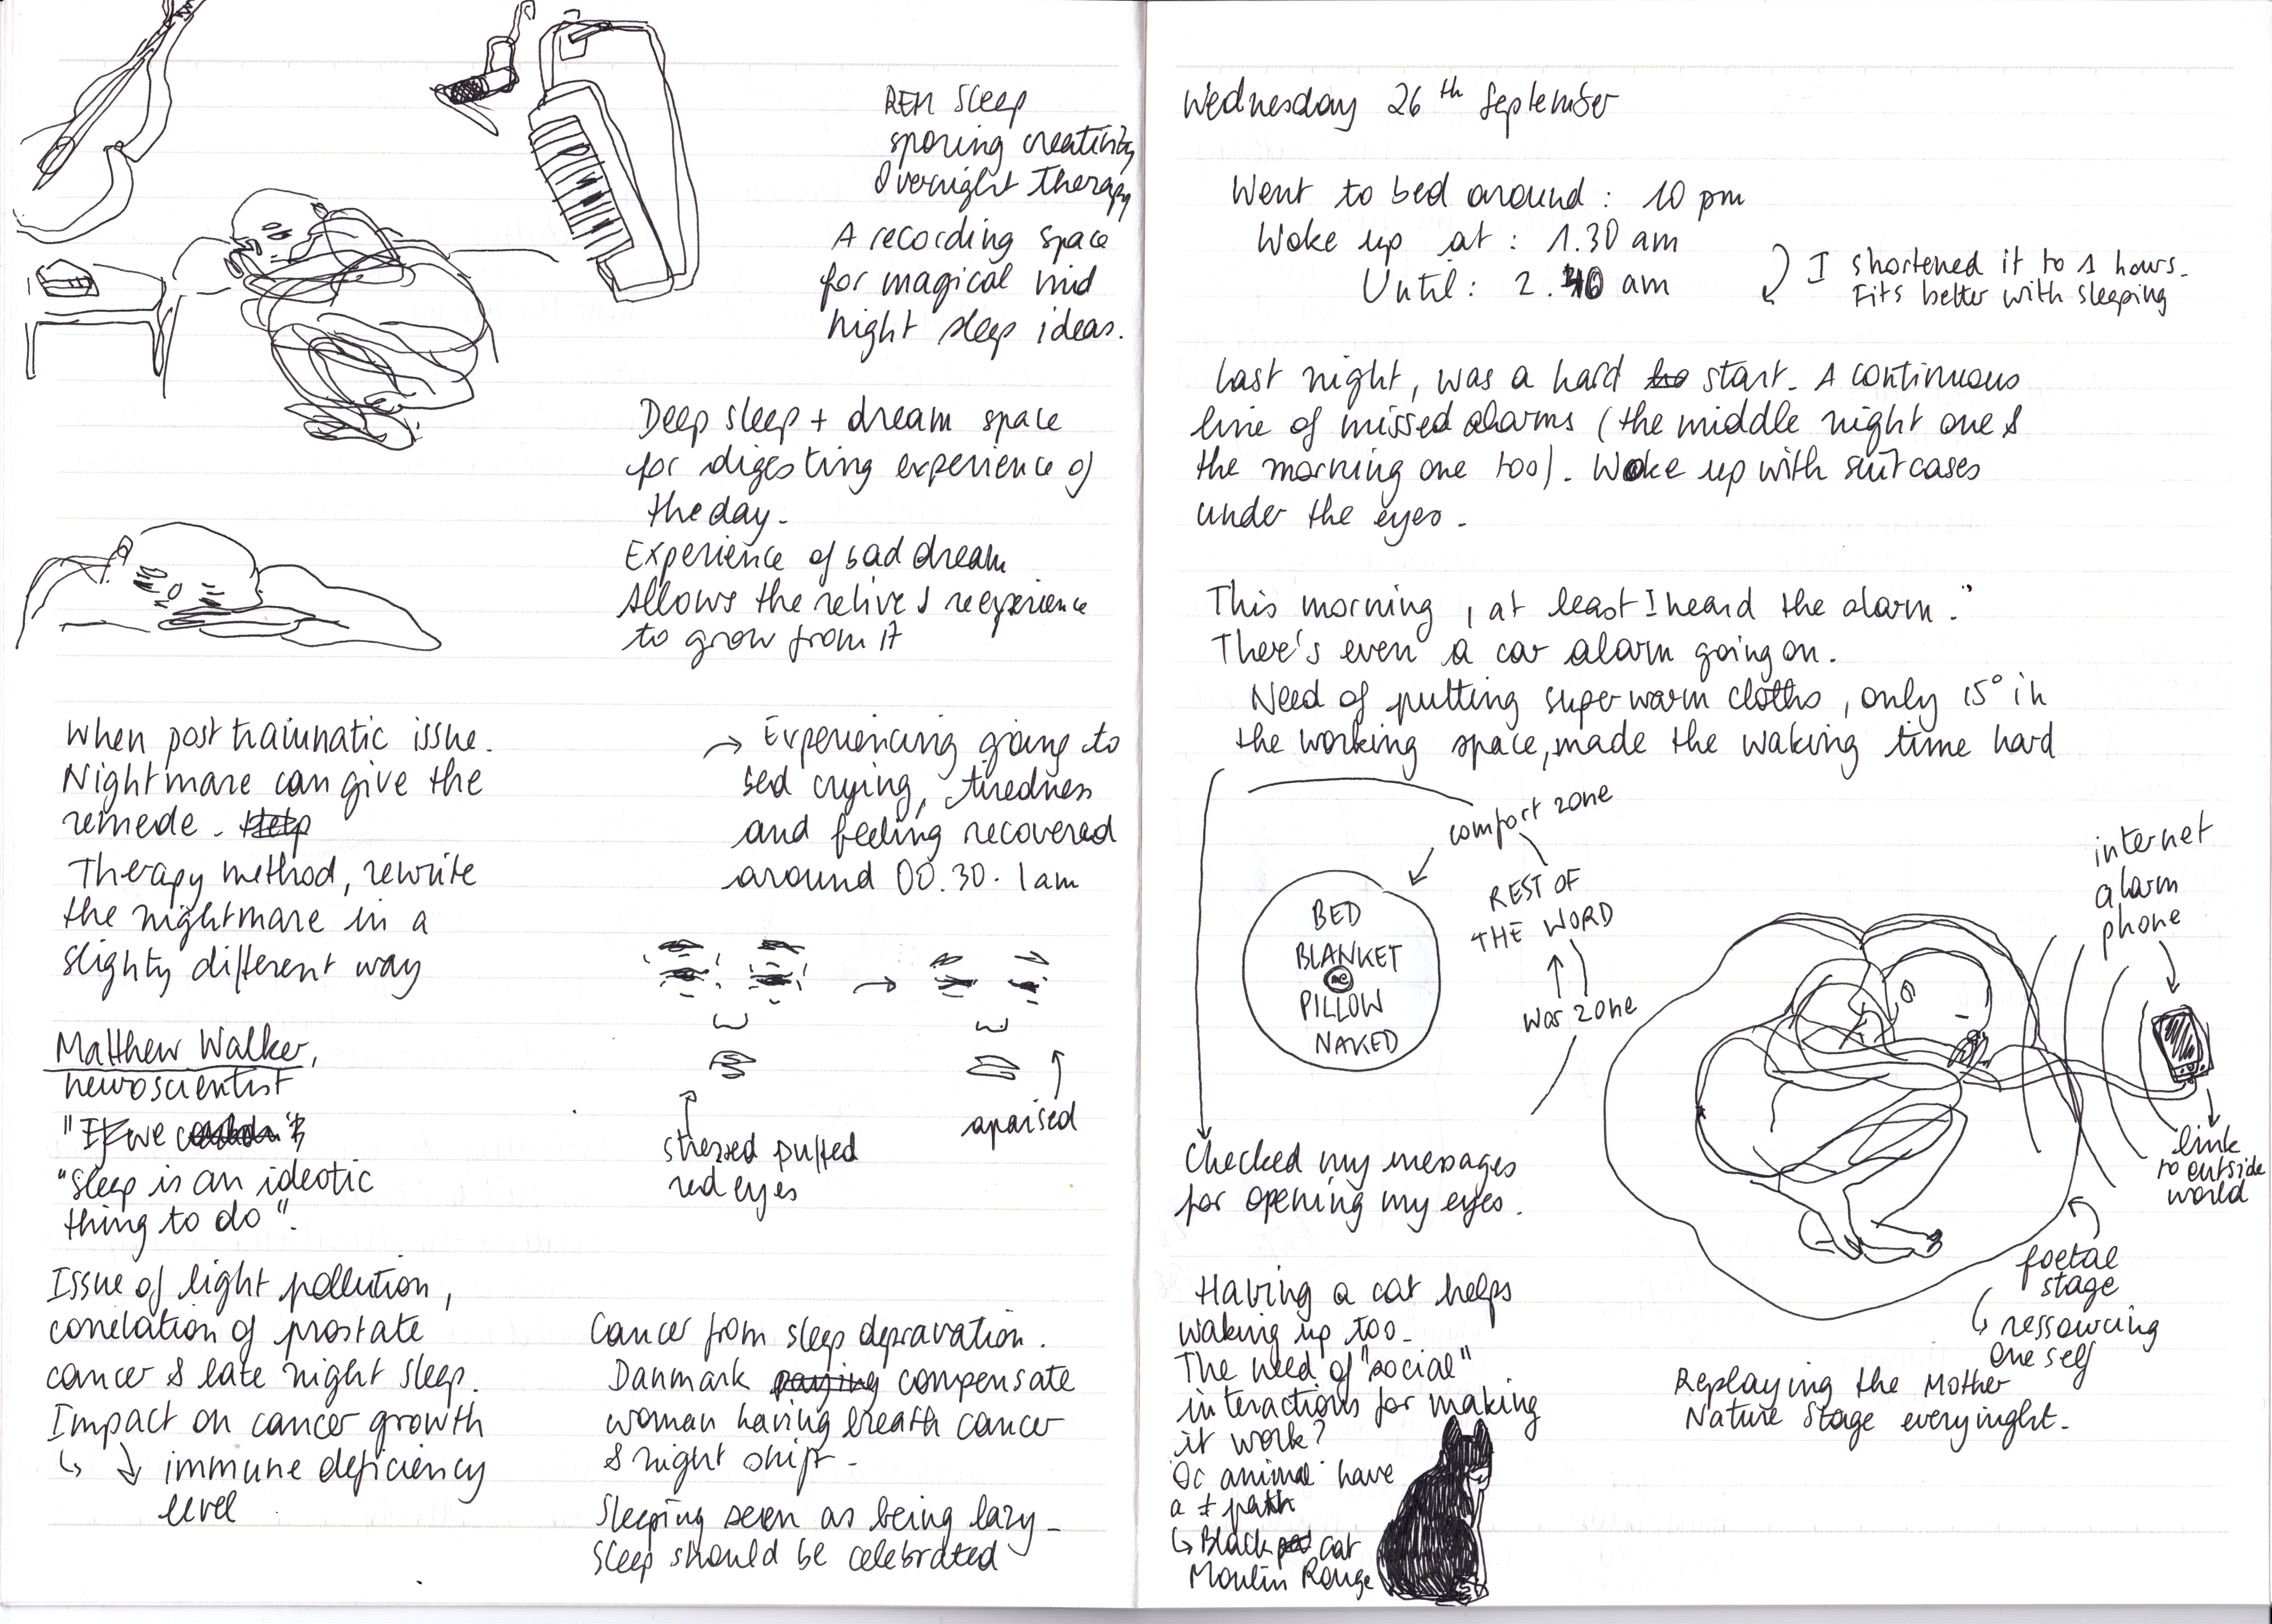 REM Sleep
sporing creativity
Overnight Therapy
A recording space
for magical mid
night sleep ideas.
Deep sleep + dream space
for digesting experience of
the day.
Experience of bad dream
Allows the relive & reexperience
to grow from it
When post traiumatic issue.
Nightmare can give the
remede.
Therapy method, rewrite
the nightmare in a
slighty different way
→ Experiencing going to
bed crying, tiredness
and feeling recovered
around 00.30. 1am
stressed puffed
red eyes
apaised
Matthew Walker,
neuroscientist
"If we
"Sleep is an ideotic
thing to do".
Issue of light pollution,
correlation of prostate
cancer & late night sleep.
Impact on cancer growth
↳ ↓ immune deficiency
level
Cancer from sleep depravation.
Danmark paying compensate
woman having breath cancer
& night shift -
Sleeping seen as being lazy -
Sleep should be celebrated
Wednesday 26th September
Went to bed around : 10 pm
Woke up at : 1.30 am
Until : 2.40 am
I shortened it to 1 hours.
Fits better with sleeping
Last night, was a hard start. A continuous
line of missed alarms (the middle night one &
the morning one too). Woke up with suitcases
under the eyes.
This morning, at least I heard the alarm."
There's even a car alarm going on.
Need of putting super warm cloths, only 15° in
the working space, made the waking time hard
comfort zone
REST OF
THE WORD
war zone
BED
BLANKET
me
PILLOW
NAKED
internet
alarm
phone
link
to outside
world
foetal
stage
↳ ressourcing
one self
Replaying the Mother
Nature Stage everynight.
Checked my messages
for opening my eyes.
Having a cat helps
waking up too.
The need of "social"
interactions for making
it work?
animal have
a ≠ path
↳ Black cat
Moulin Rouge